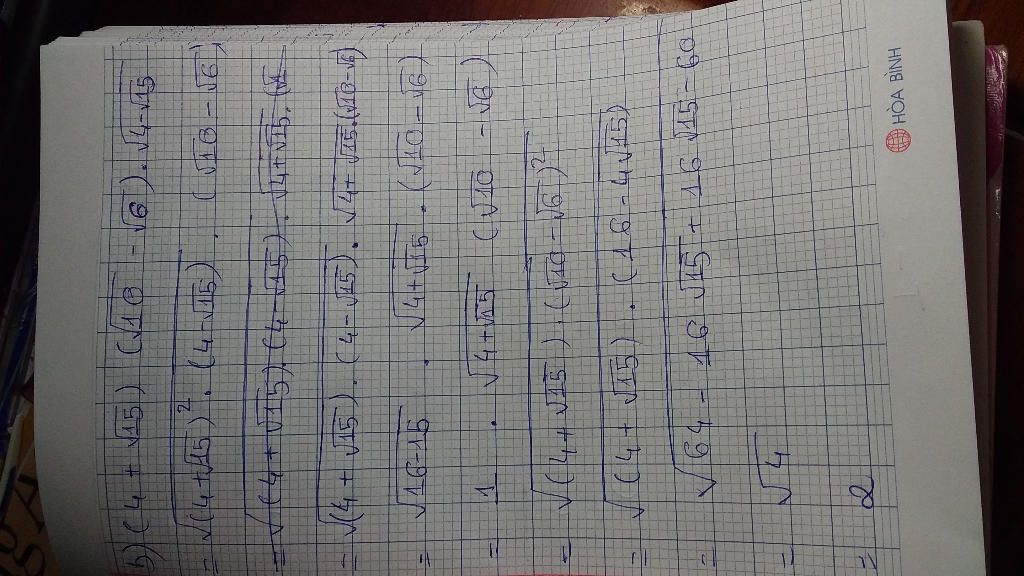 h) (4 + √15) (√10 - √6) . √(4-√15)
= √((4+√15)² . (4-√15)) . (√10 - √6)
= √((4+√15)(4-√15)) . √(4+√15) . (√1
= √((4+√15) . (4-√15)) . √(4+√15) . (√10-√6)
= √(16-15) . √(4+√15) . (√10-√6)
= 1 . √(4+√15) (√10 - √6)
= √((4+√15) . (√10-√6)²)
= √((4+√15) . (16-4√15))
= √(64 - 16√15 + 16√15 - 60)
= √4
= 2
HÒA BÌNH